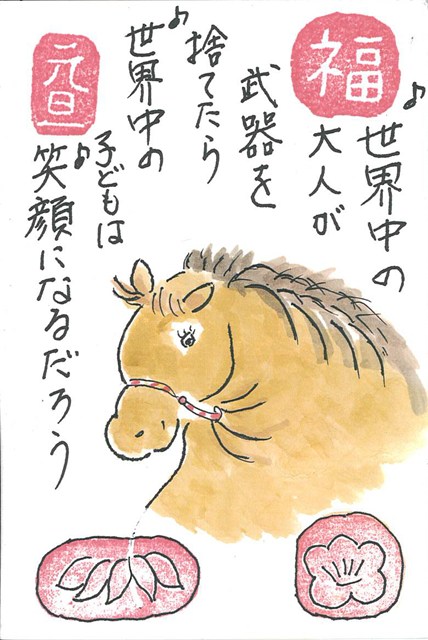 福
♪世界中の
大人が
武器を
捨てたら
♪世界中の
子どもは
♪笑顔になるだろう
元旦